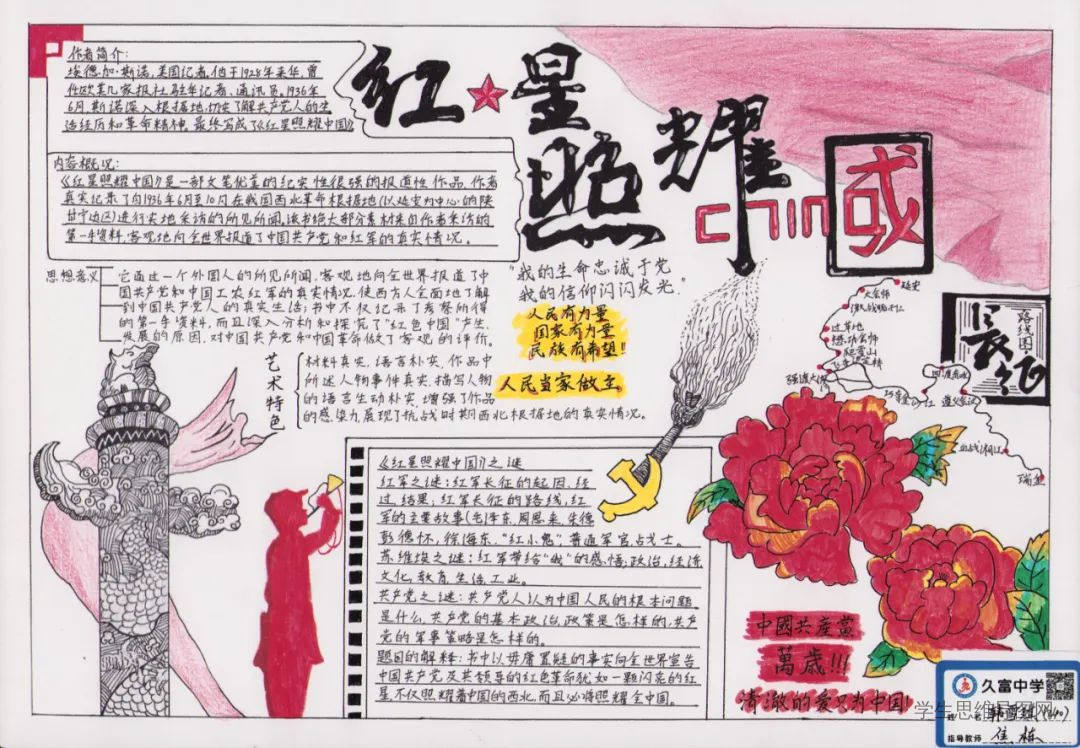 作者简介:
埃德加·斯诺,美国记者,他于1928年来华,曾
任欧美几家报社驻华记者、通讯员。1936年
6月,斯诺深入根据地,切实了解共产党人的生
活经历和革命精神,最终写成了《红星照耀中国》
红星
照耀
china
国
内容概况:
《红星照耀中国》是一部文笔优美的纪实性很强的报道性作品,作者
真实纪录了自1936年6月至10月在我国西北革命根据地(以延安为中心的陕
甘宁边区)进行实地采访的所见所闻,该书绝大部分素材来自作者采访的
第一手资料,客观地向全世界报道了中国共产党和红军的真实情况。
思想意义
它通过一个外国人的所见所闻,客观地向全世界报道了中
国共产党和中国工农红军的真实情况,使西方人全面地了解
到中国共产党人的真实生活;书中不仅纪录了考察所得
的第一手资料,而且深入分析和探究了“红色中国”产生、
发展的原因,对中国共产党和中国革命做了客观的评价。
“我的生命忠诚于党
我的信仰闪闪发光.”
人民有力量
国家有力量
民族有希望!!
人民当家做主
艺术特色
材料真实,语言朴实,作品中
所述人物事件真实,描写人物
的语言生动朴实,增强了作品
的感染力,展现了抗战时期西北根据地的真实情况。
长征
路线图
延安
大会师
过草地
懋功会师
爬雪山
强渡大
遵义会议
血战湘江
瑞金
《红星照耀中国》之谜
红军之谜:红军长征的起因、经
过、结果;红军长征的路线,红
军的主要故事(毛泽东、周恩来、朱德
彭德怀、徐海东、“红小鬼”、普通军官、战士。
苏维埃之谜:红军带给“我”的感悟;政治,经济
文化,教育,生活,工业。
共产党之谜:共产党人认为中国人民的根本问题
是什么,共产党的基本政治,政策是怎样的,共产
党的军事策略是怎样的。
题目的解释:书中以毋庸置疑的事实向全世界宣告
中国共产党及其领导的红色革命犹如一颗闪亮的红
星不仅照耀着中国的西北,而且必将照耀全中国。
中國共产黨
萬歲!!!
清澈的爱只为中国!
久富中学
学生思维导图网
姓名
指导教师 焦栋